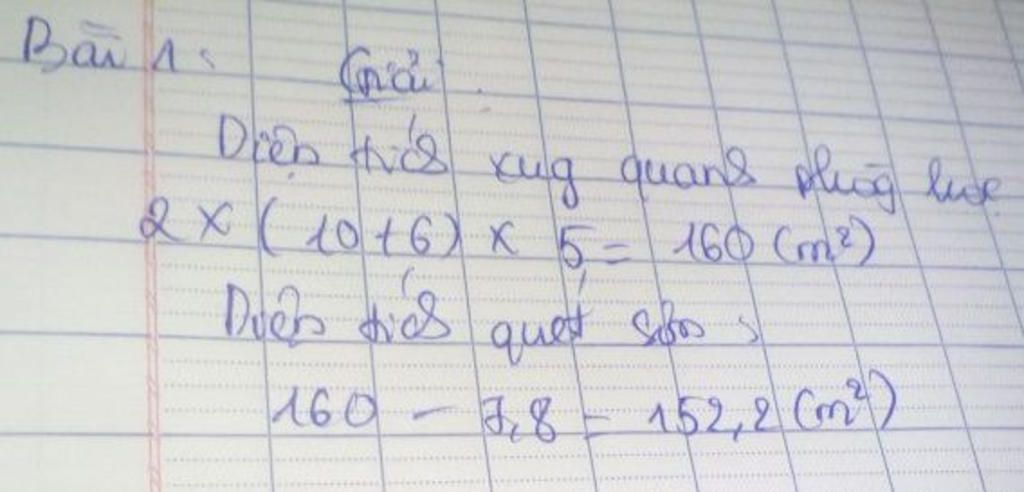 Bài 1:
Giải
Diện tích xug quanh phòg học
2 x (10+6) x 5 = 160 (m²)
Diện tích quét sơn :
160 - 7,8 = 152,2 (m²)